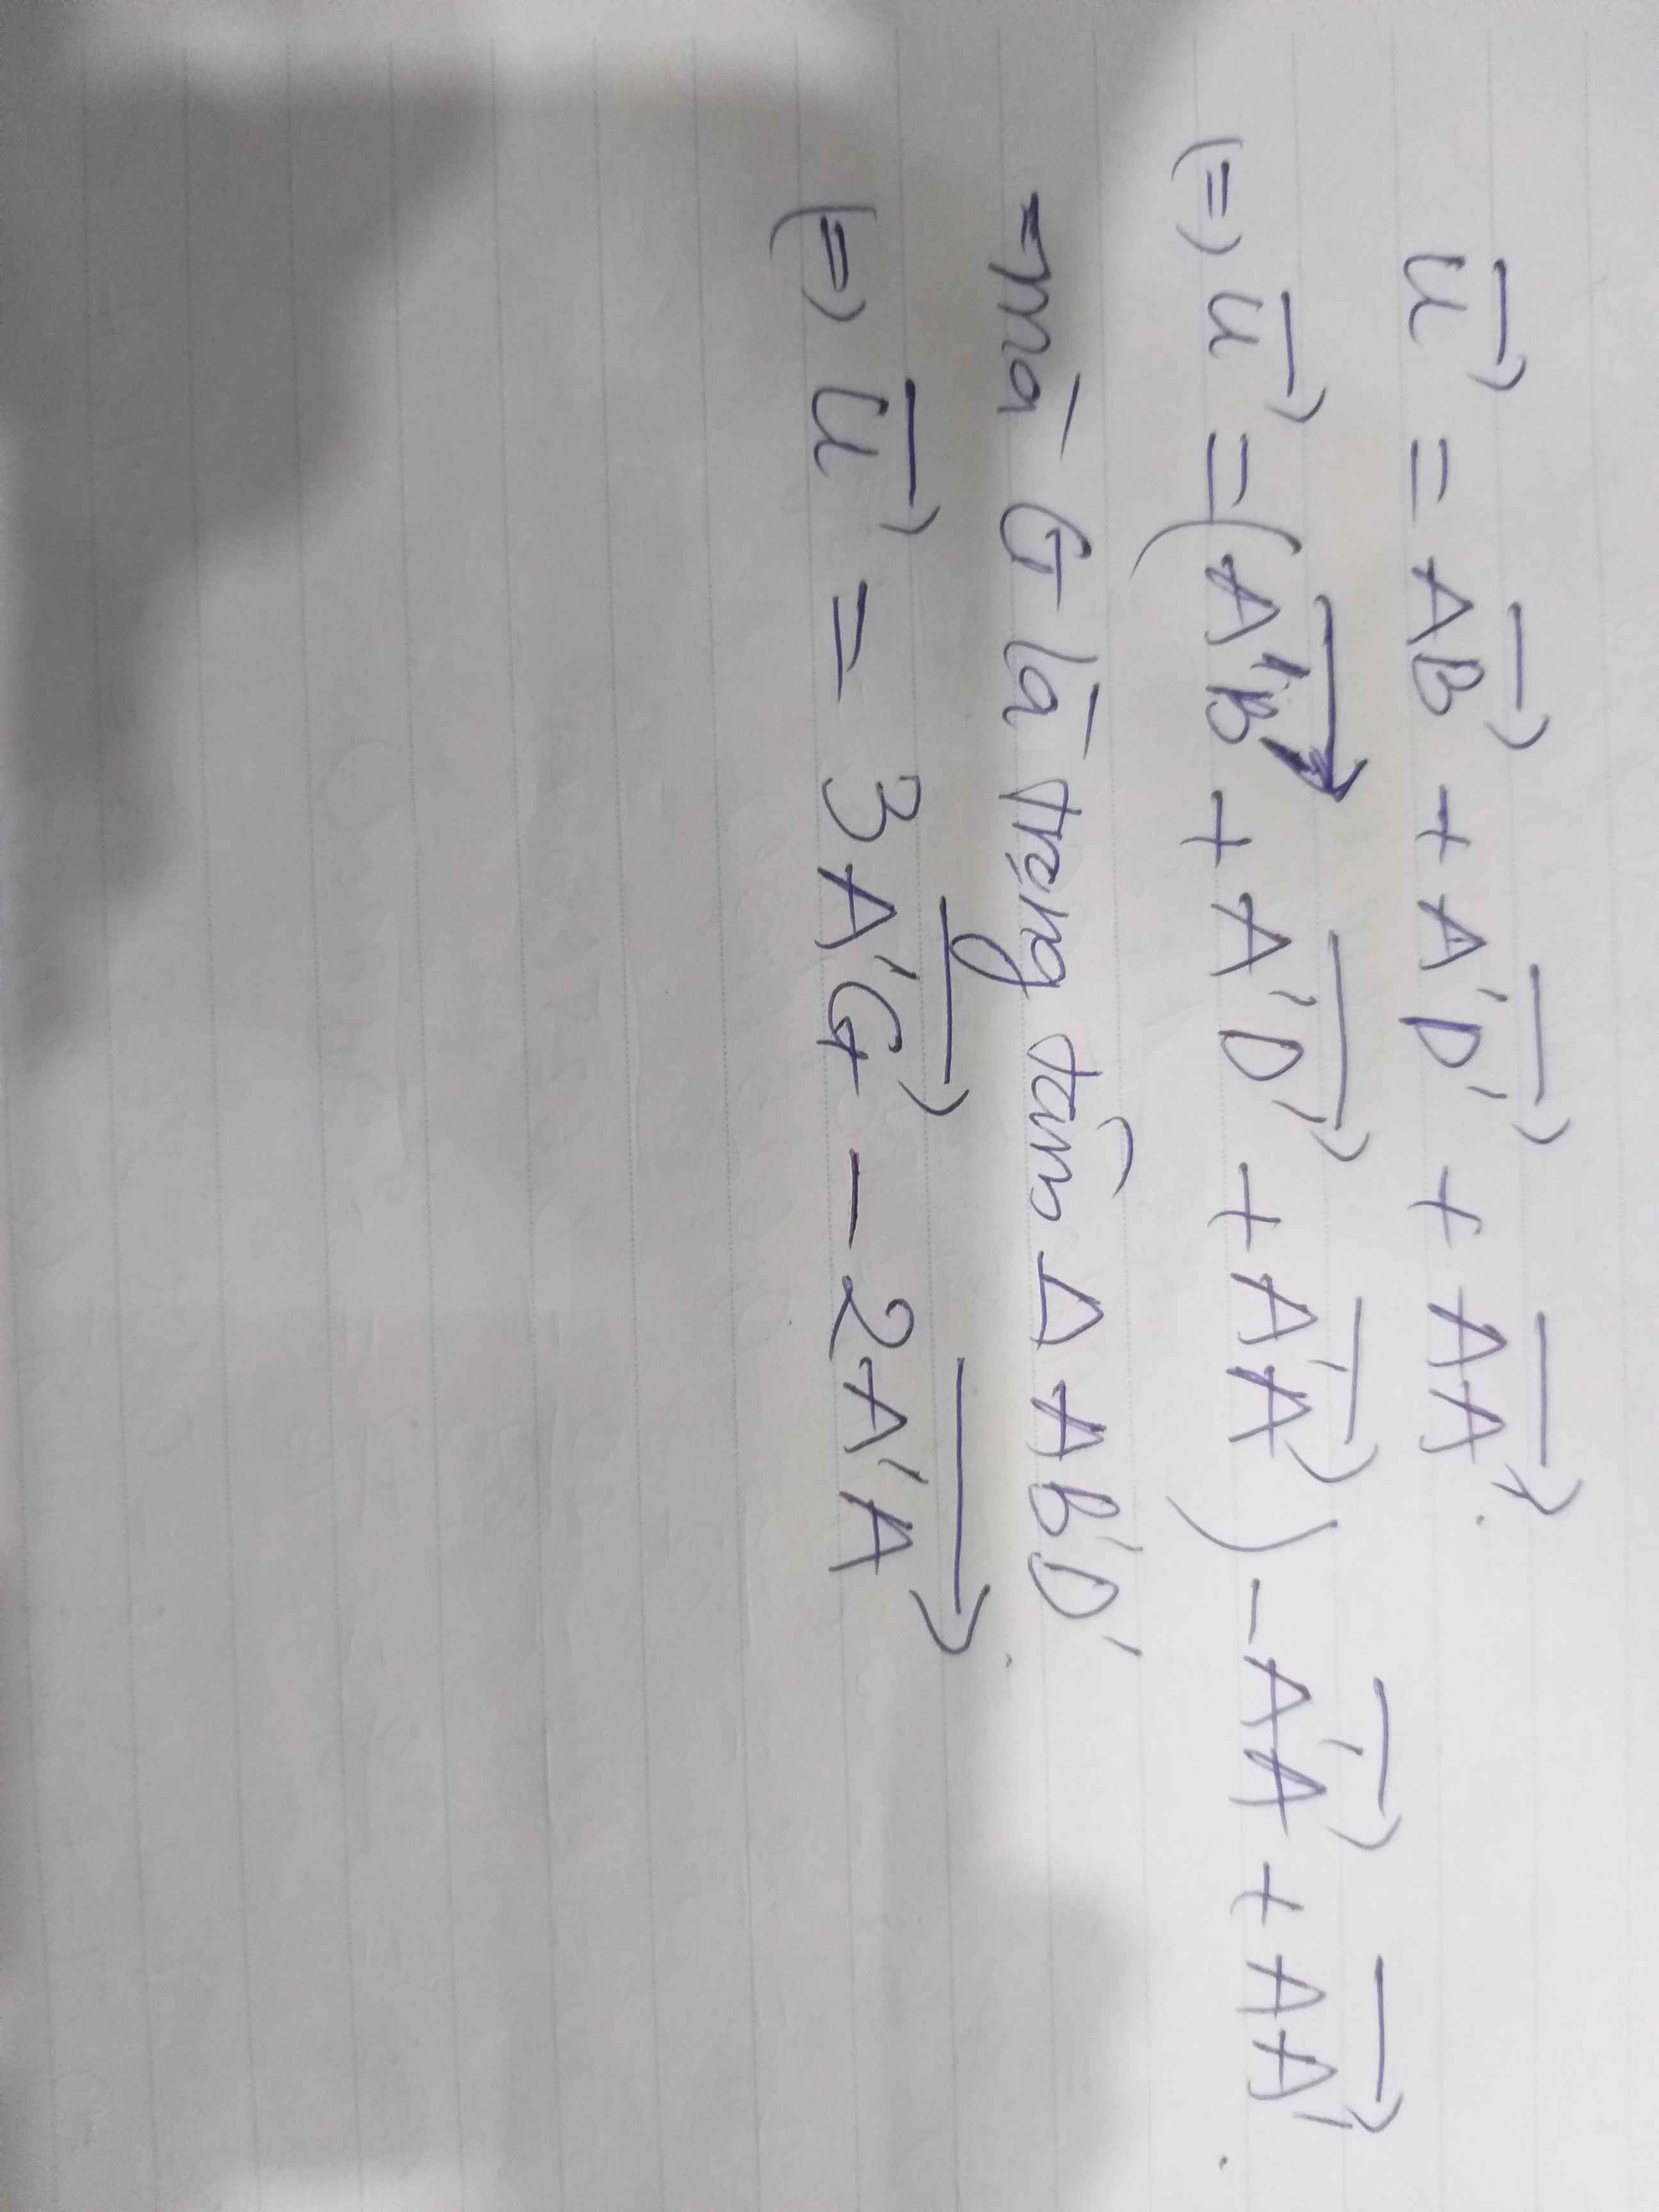 u⃗ = AB⃗ + A'D'⃗ + AA'⃗.
(=) u⃗ = (A'B'⃗ + A'D'⃗ + A'A⃗) - A'A⃗ + AA'⃗.
- mà G là trọng tâm Δ AB'D'
(=) u⃗ = 3A'G⃗ - 2A'A⃗.